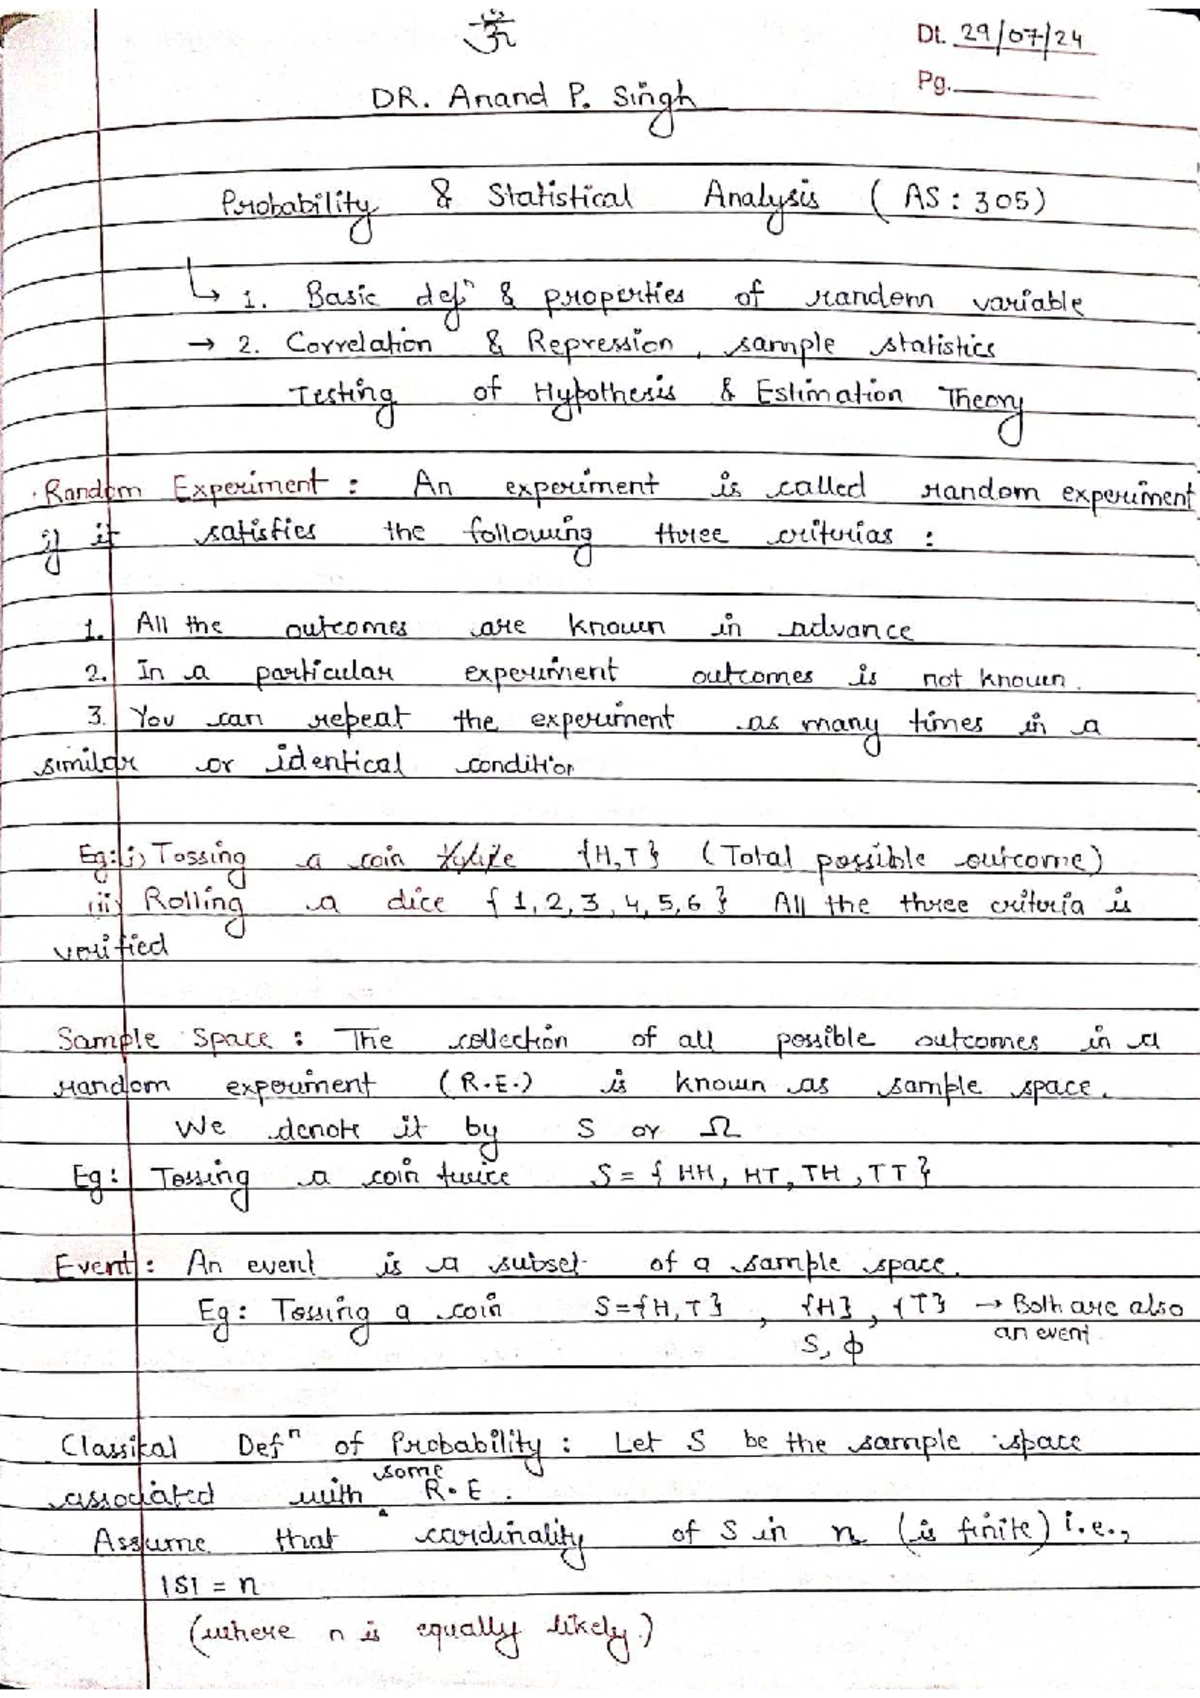 ॐ
Dt. 29/07/24
Pg.
DR. Anand P. Singh
Probability & Statistical Analysis ( AS : 305)
↳ 1. Basic defⁿ & properties of random variable
→ 2. Correlation & Repression, sample statistics
Testing of Hypothesis & Estimation Theory
Random Experiment : An experiment is called random experiment
if it satisfies the following three criterias :
1. All the outcomes are known in advance
2. In a particular experiment outcomes is not known.
3. You can repeat the experiment as many times in a
similar or identical condition
Eg: i) Tossing a coin {H,T} (Total possible outcome)
(ii) Rolling a dice { 1, 2, 3, 4, 5, 6 } All the three criteria is
verified
Sample Space : The collection of all possible outcomes in a
random experiment (R.E.) is known as sample space.
We denote it by S or Ω
Eg: Tossing a coin twice S = { HH, HT, TH, TT }
Event : An event is a subset of a sample space.
Eg: Tossing a coin S={H,T} , {H}, {T} → Both are also
an event
S, ϕ
Classical Defⁿ of Probability : Let S be the sample space
associated with some R.E.
Assume that cardinality of S in n (is finite) i.e.,
|S| = n
(where n is equally likely.)